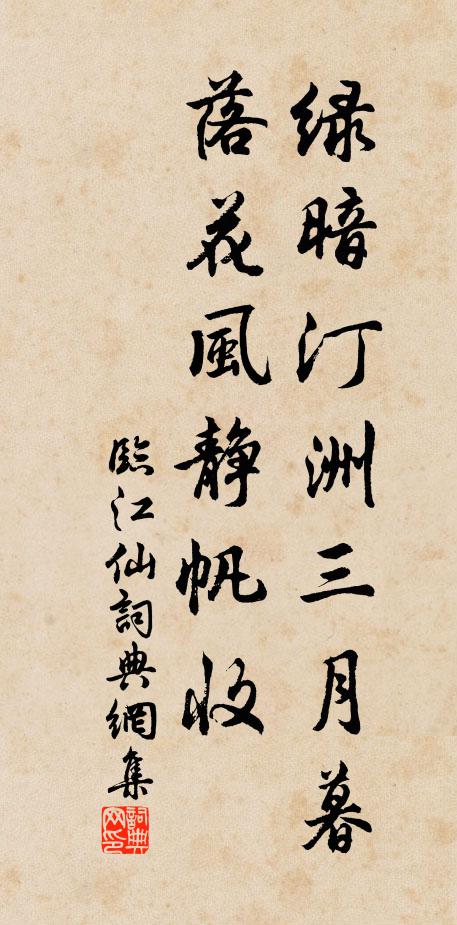 绿暗汀洲三月暮
落花風静帆收
臨江仙詞典網集
詞典网印